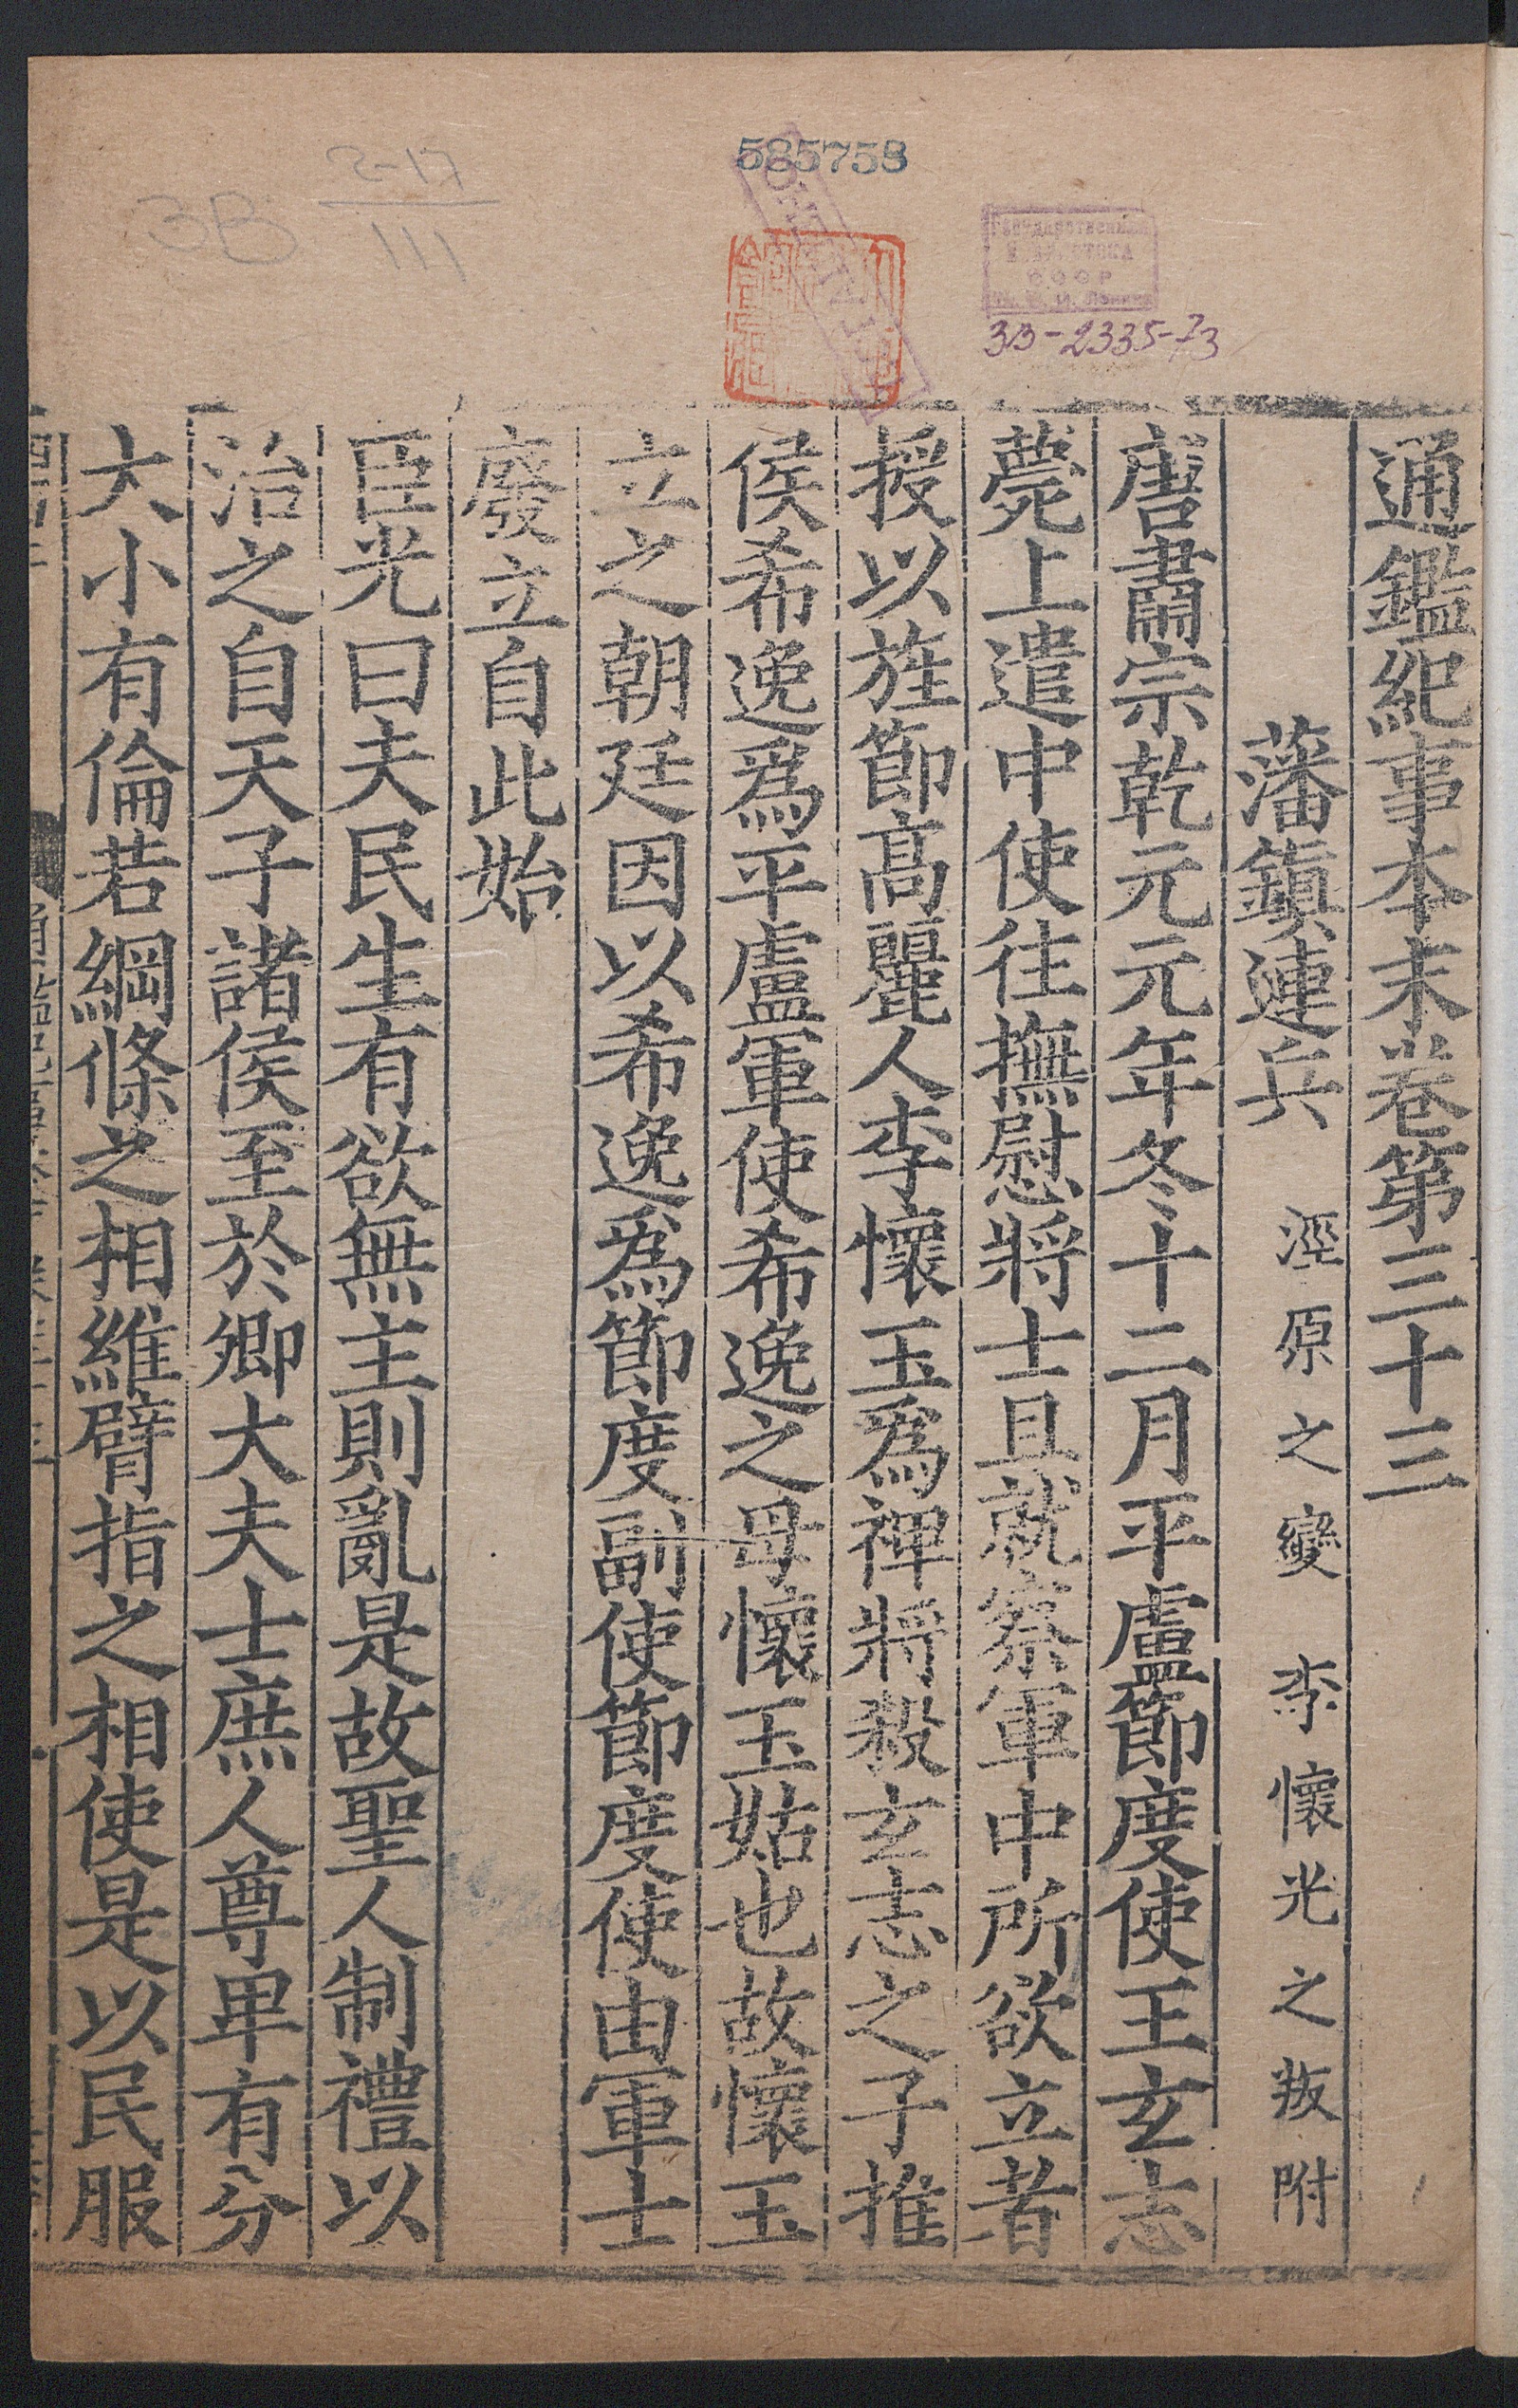 585758
2-17
3B
111
Государственная
БИБЛИОТЕКА
СССР
им. В. И. Ленина
3B-2335-73
通鑑紀事本末卷第三十三
藩鎮連兵 涇原之變 李懷光之叛附
唐肅宗乾元元年冬十二月平盧節度使王玄志
薨上遣中使往撫慰將士且就察軍中所欲立者
授以旌節高麗人李懷玉爲禆將殺玄志之子推
侯希逸爲平盧軍使希逸之母懷玉姑也故懷玉
立之朝廷因以希逸爲節度副使節度使由軍士
廢立自此始
臣光曰夫民生有欲無主則亂是故聖人制禮以
治之自天子諸侯至於卿大夫士庶人尊卑有分
大小有倫若綱條之相維臂指之相使是以民服